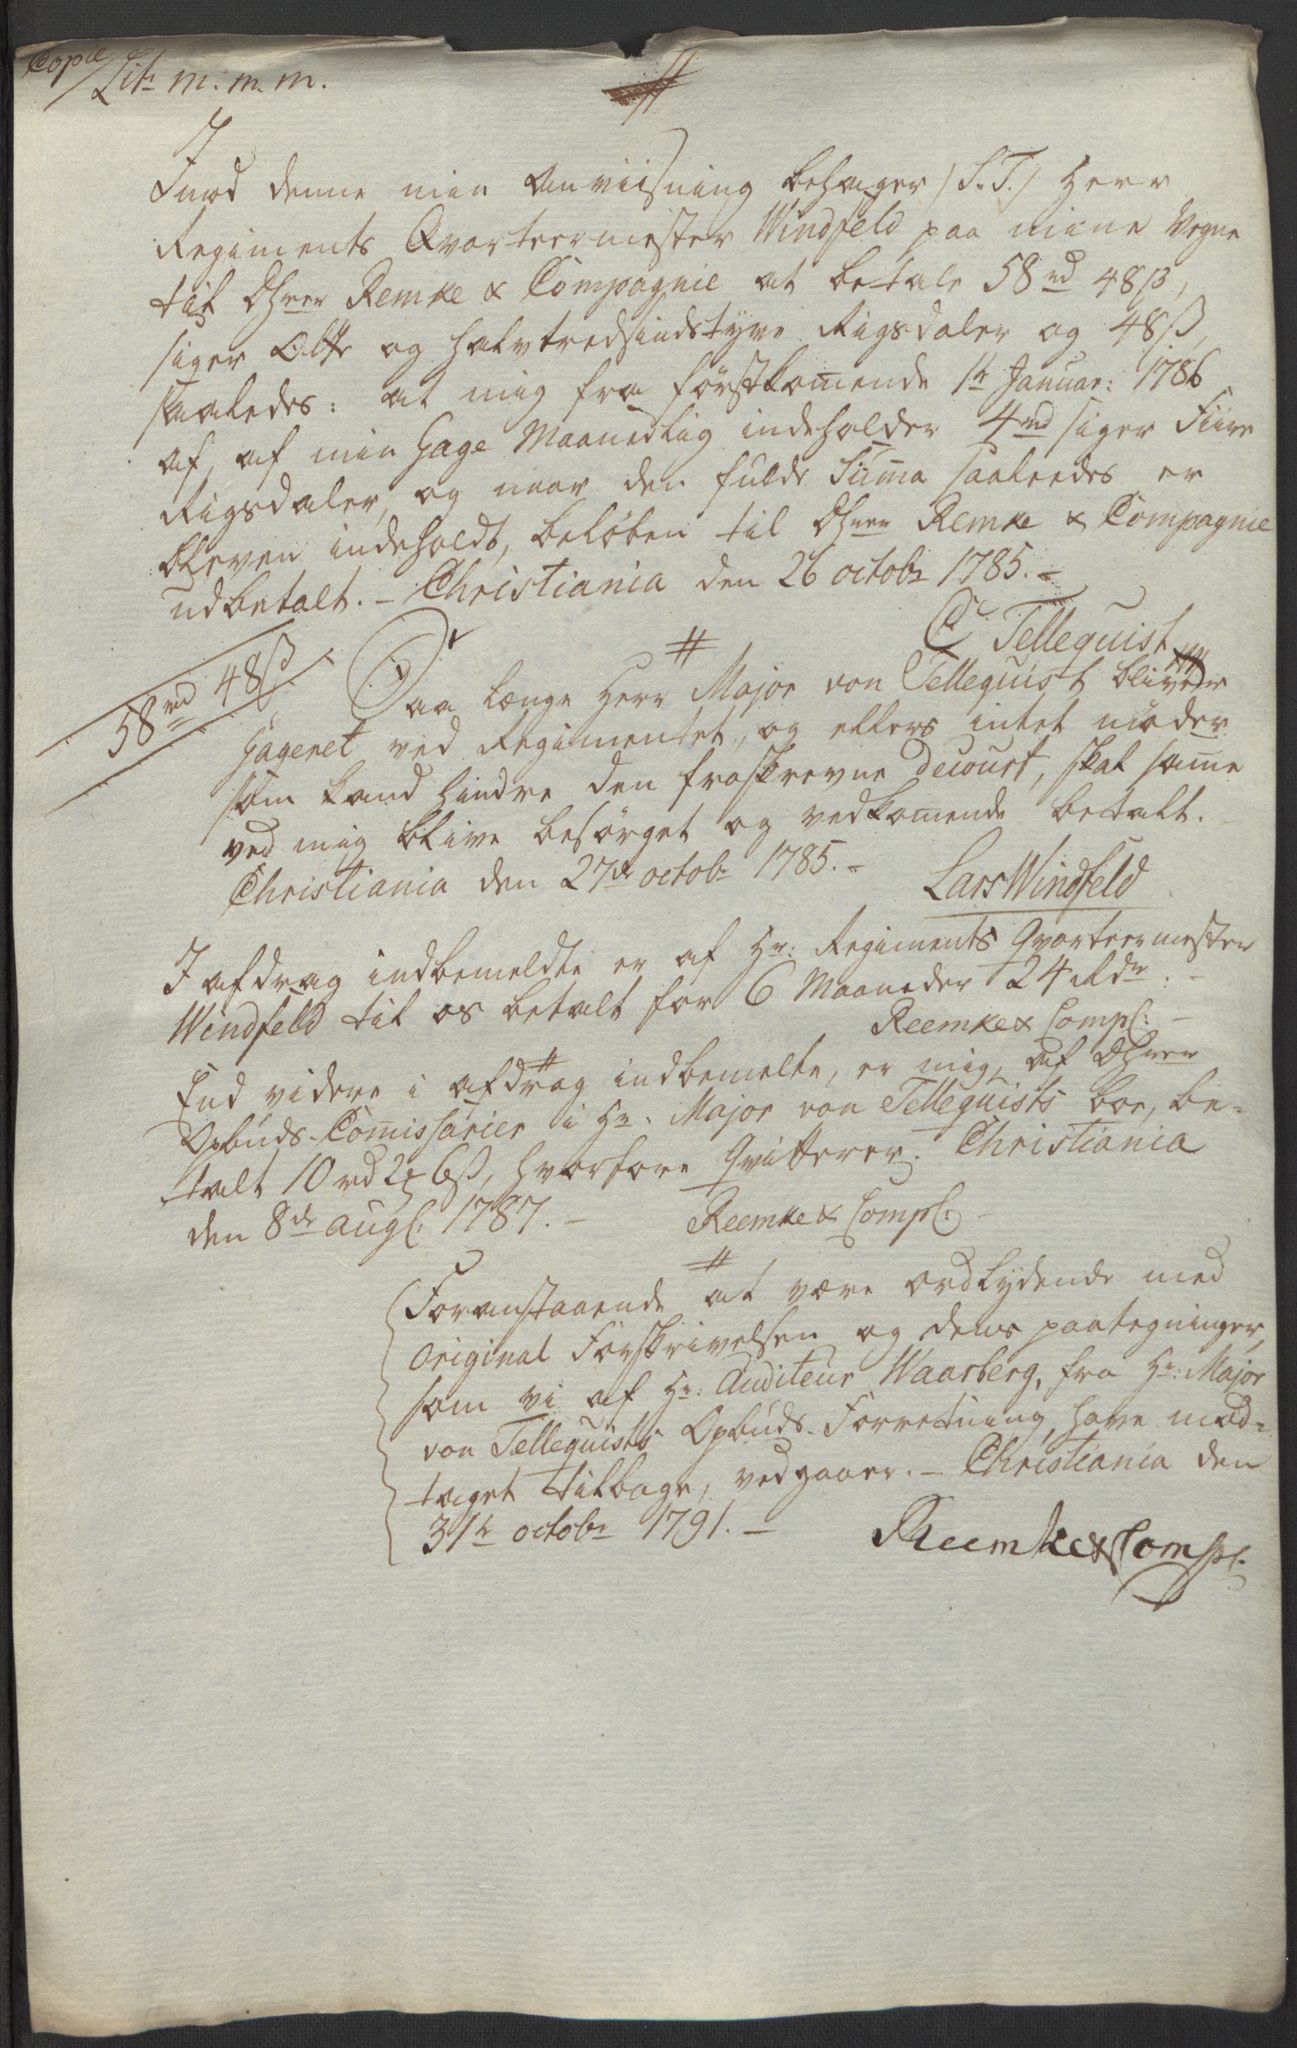 Copie
Lit: m. m. m.
Imod denne min Anviisning behager /S. T./ Herr
Regiments Qvarteermester Windfeld paa mine Vegne
til Dhrrer Remke & Compagnie at betale 58 rd 48 ß,
siger Otte og halvtredsindstyve Rigsdaler og 48 ß,
saaledes: at mig fra förstkomende 1te Januar: 1786
af, af min Gage Maanedlig indeholder 4 rd siger Fiire
Rigsdaler, og naar den fulde Suma saaleedes er
bleven indeholdt, beløben til Dhrrer Remke & Compagnie
udbetalt. – Christiania den 26 octobr 1785. –
C Tellequist
58 rd 48 ß
Saa længe Herr Major von Tellequist bliver
gageret ved Regimentet, og ellers intet møder
som kand hindre den foreskrevne decourt, skal same
ved mig blive besørget og vedkomende betalt.
Christiania den 27de octobr 1785. –
Lars Windfeld
I afdrag indbemeldte er af Hr: Regiments Qvarteermester
Windfeld til os betalt for 6 Maaneder 24 Rdr. –
Reemke & Comp:
End videre i afdrag indbemelte, er mig, af Dhrrer
Opbuds-Comissarier i Hr. Major von Tellequists boe, be-
talt 10 rd 2 6 ß, hvorfore qvitterer. Christiania
den 8de aug: 1787. –
Reemke & Comp:
Foranstaaende at være ordlydende med
Original Forskrivelsen og dens paategninger,
som vi af Hr: Auditeur Waarberg, fra Hr: Major
von Tellequists Opbuds-Forretning, have mod-
taget tilbage, vedgaaer. – Christiania den
31te octobr 1791. –
Reemke & Comp: